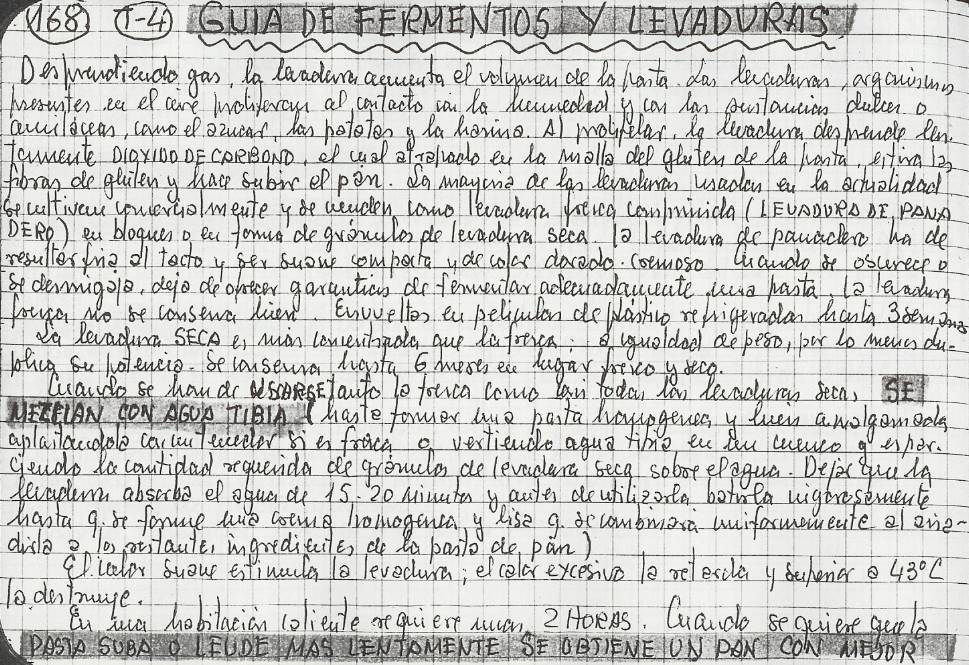 168 T-4 GUIA DE FERMENTOS Y LEVADURAS
Desprendiendo gas, la levadura aumenta el volumen de la pasta. Las levaduras, organismos
presentes en el aire proliferan al contacto con la humedad y con las sustancias dulces o
amiláceas, como el azucar, las patatas y la harina. Al proliferar, la levadura desprende len-
tamente DIOXIDO DE CARBONO, el cual atrapado en la malla del gluten de la pasta, estira las
fibras de gluten y hace subir el pan. La mayoria de las levaduras usadas en la actualidad
se cultivan comercialmente y se venden como levadura fresca comprimida (LEVADURA DE PANA
DERO) en bloques o en forma de gránulos de levadura seca. la levadura de panadero ha de
resultar fria al tacto y ser suave compacta y de color dorado-cremoso. Cuando se oscurece o
se desmigaja, deja de ofrecer garantias de fermentar adecuadamente una pasta. La levadura
fresca no se conserva bien. Envueltas en peliculas de plástico refrigeradas hasta 3 semanas
La levadura SECA es mas concentrada que la fresca; a igualdad de peso, por lo menos du-
plica su potencia. Se conserva hasta 6 meses en lugar fresco y seco.
Cuando se han de USARSE tanto la fresca como casi todas las levaduras secas, SE
MEZCLAN CON AGUA TIBIA (hasta formar una pasta homogenea y bien amalgamada
aplastandola con un tenedor si es fresca o vertiendo agua tibia en un cuenco y espar-
ciendo la cantidad requerida de gránulos de levadura seca sobre el agua. Dejar que la
levadura absorba el agua de 15-20 minutos y antes de utilizarla batirla vigorosamente
hasta q. se forme una crema homogenea y lisa q. se combinará uniformemente al aña-
dirla a los restantes ingredientes de la pasta de pan)
El calor suave estimula la levadura; el calor excesivo la retarda y superior a 43ºC
la destruye.
En una habitación caliente requiere unas 2 HORAS. Cuando se quiere que la
PASTA SUBA O LEUDE MAS LENTAMENTE SE OBTIENE UN PAN CON MEJOR